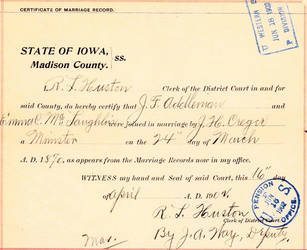 CERTIFICATE OF MARRIAGE RECORD.
STATE OF IOWA,
Madison County.
ss.
R. L. Huston Clerk of the District Court in and for
said County, do hereby certify that J. F. Addleman
Emma C. McLaughlin were joined in marriage by J. H. Creger
a Minister on the 24th day of March
A. D. 1870, as appears from the Marriage Records now in my office.
WITNESS my hand and Seal of said Court, this 16th day
of April A. D. 190
R. L. Huston
Clerk of District Court
By J. A. Way, Deputy
WESTERN
JUN 18 1902
DIVISION
PENSION OFFICE